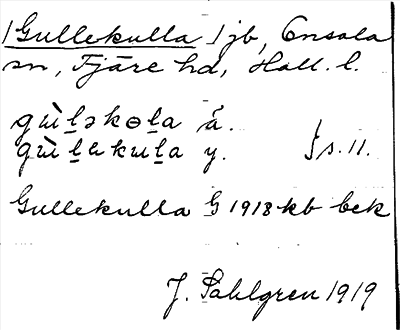 /Gullekulla / jb, Onsala
sn, Fjäre hd, Hall. l.
gɯ̀l̠əkɵl̠a ä.
gɯ̀l̠akɯl̠a y. } s. 11.
Gullekulla G 1918 kb bek
J. Sahlgren 1919